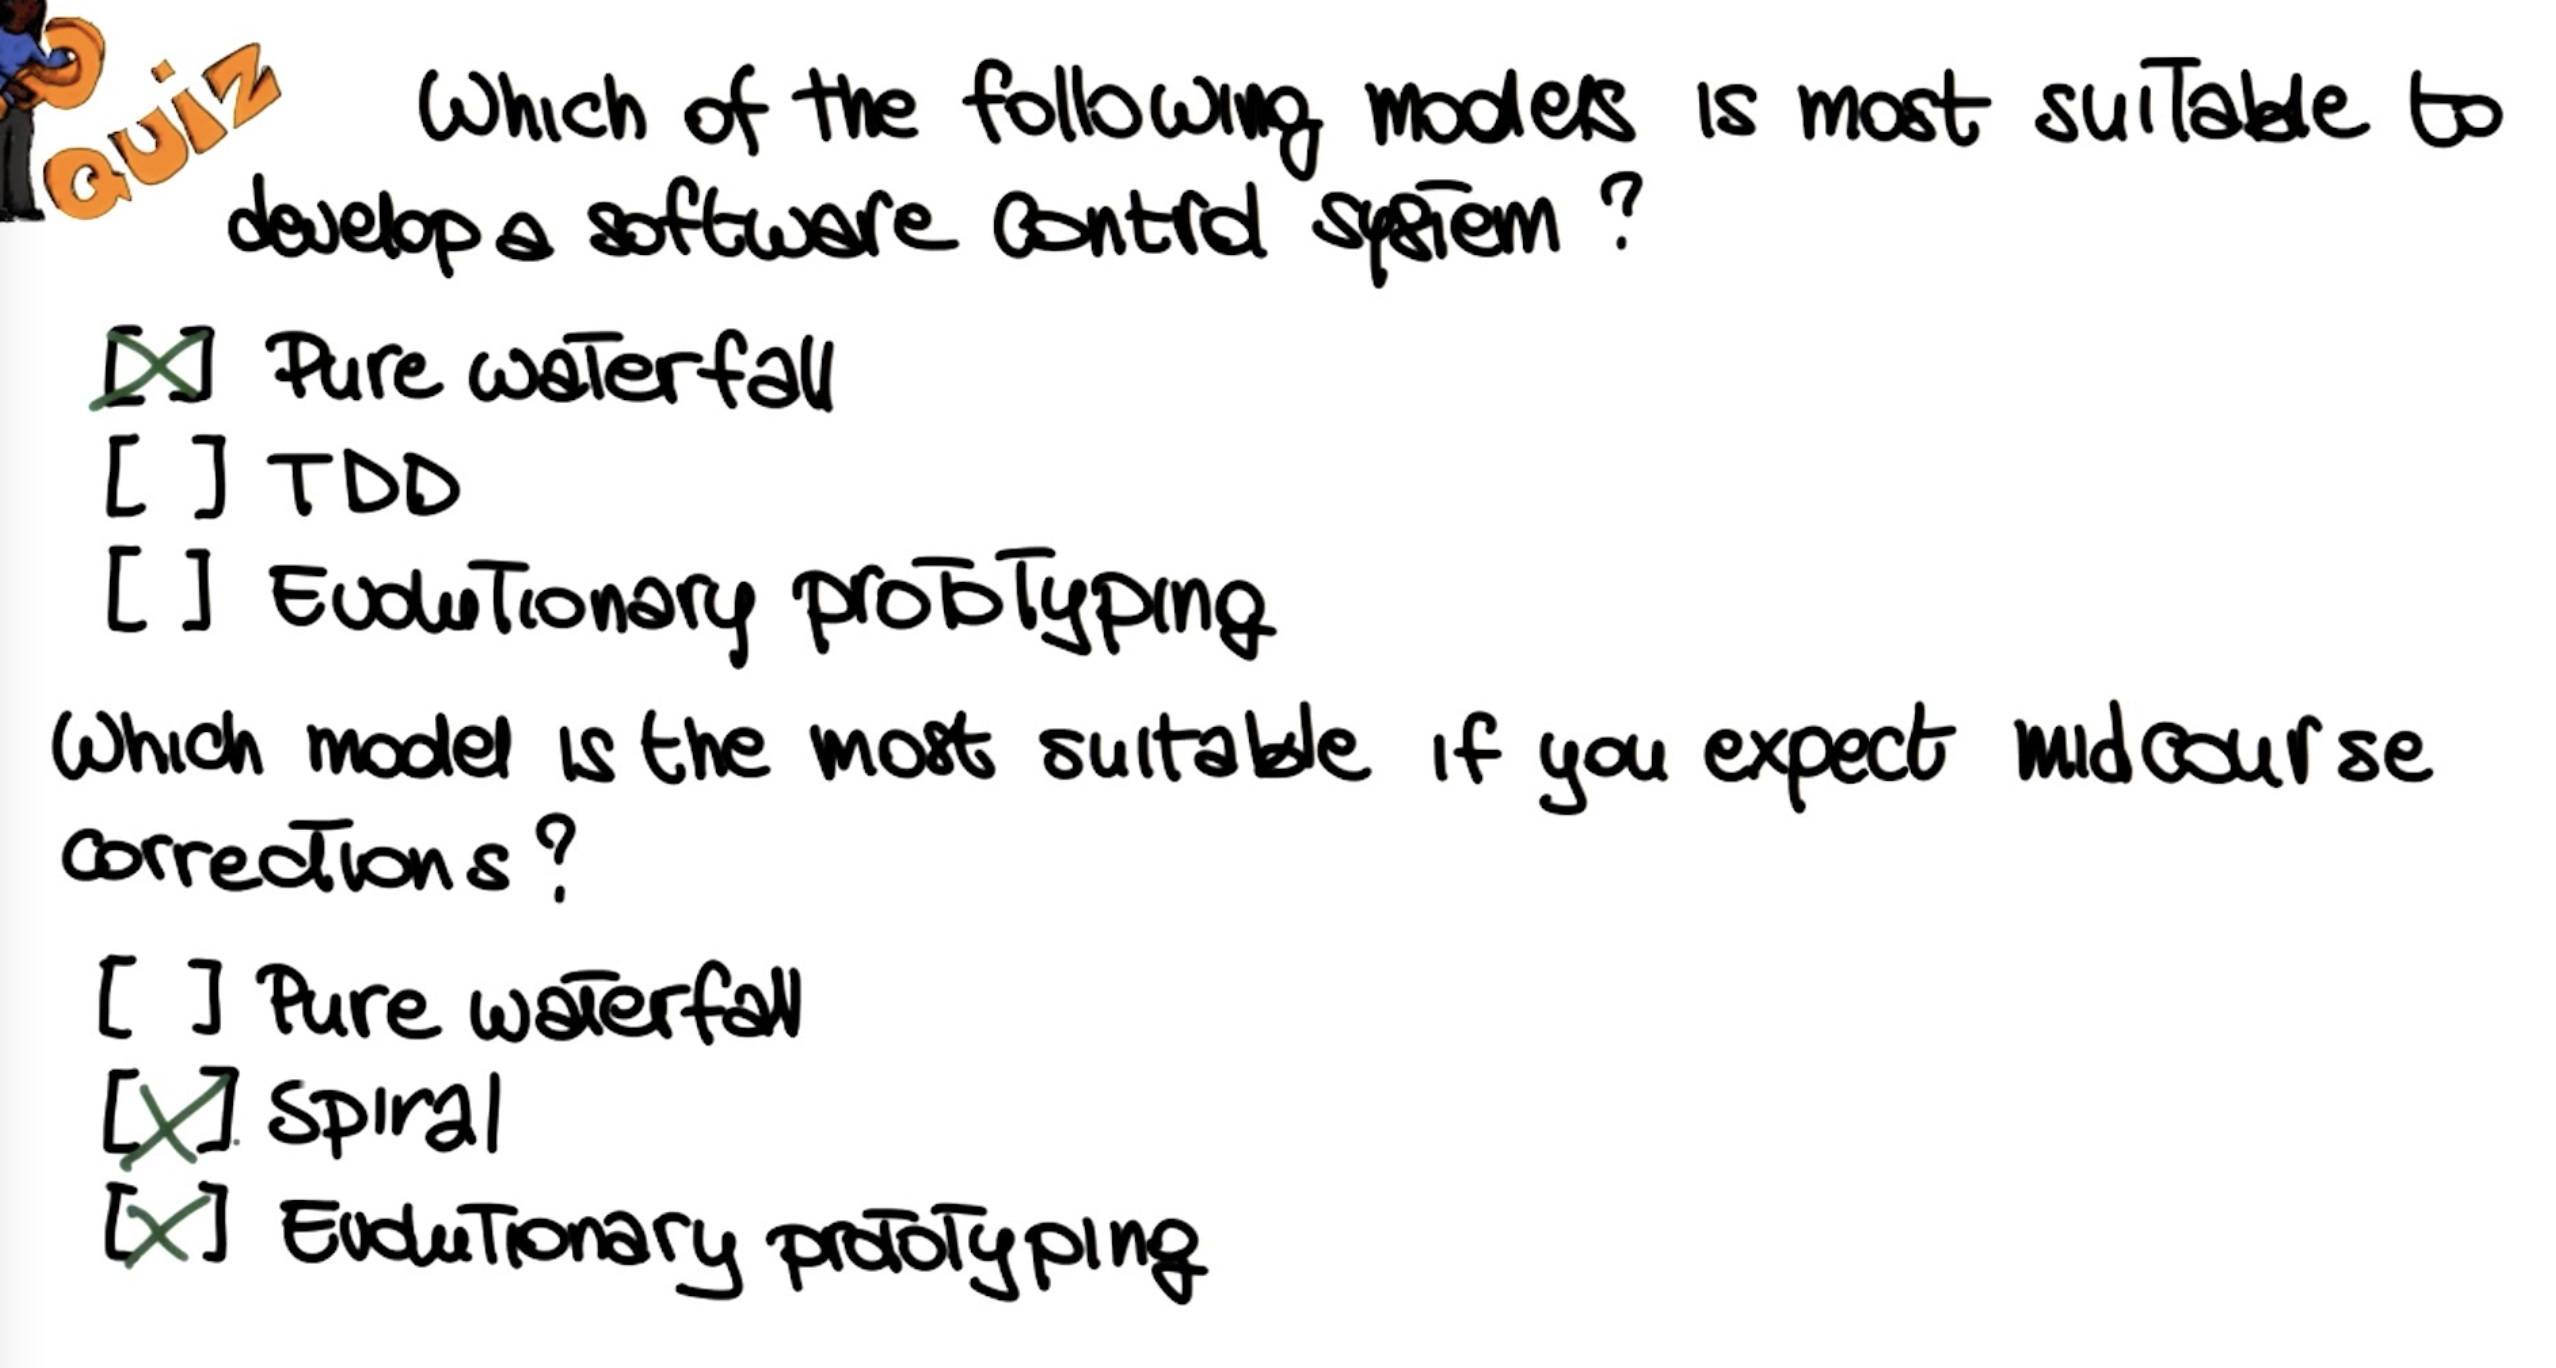 QUIZ
Which of the following models is most suitable to
develop a software control system?
[X] Pure waterfall
[ ] TDD
[ ] Evolutionary prototyping
Which model is the most suitable if you expect midcourse
corrections?
[ ] Pure waterfall
[X] Spiral
[X] Evolutionary prototyping